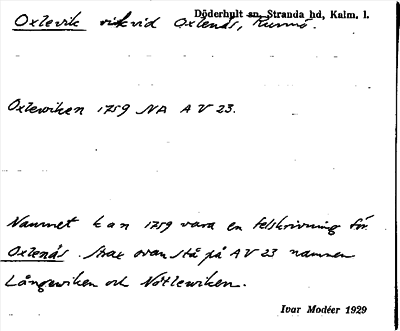 Döderhult sn, Stranda hd, Kalm. l.
Oxlevik vik vid Oxlenäs,
Oxlewiken 1759 NA A V 23.
Namnet kan 1759 vara en felskrivning för
Oxlenäs. Strax ovan stå på A V 23 namnen
Långewiken och Nötlewiken.
Ivar Modéer 1929